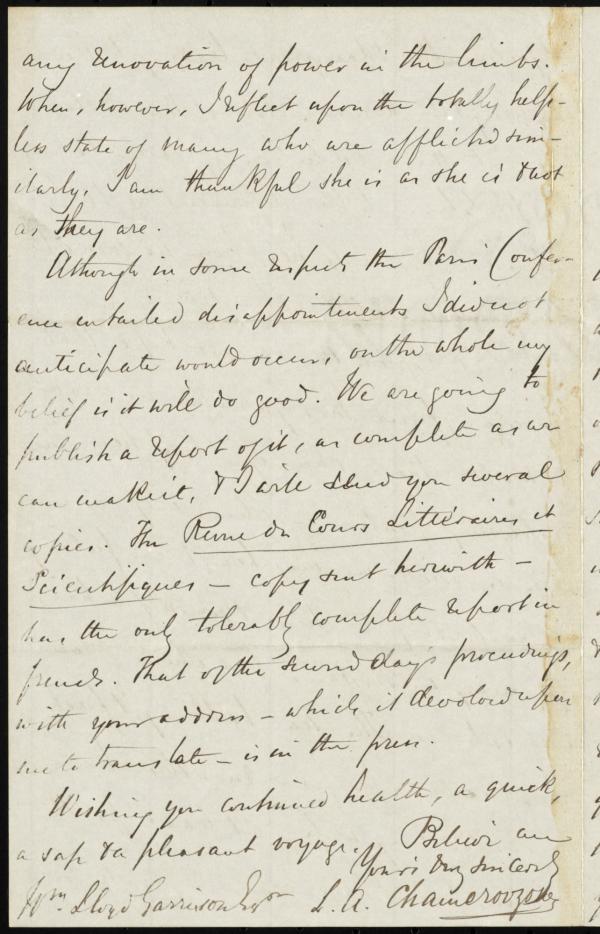 any renovation of power in the limbs.
When, however, I reflect upon the totally help-
less state of many who are afflicted sim-
ilarly, I am thankful she is as she is & not
as they are.
Although in some respects the Paris Confer-
ence entailed disappointments I did not
anticipate would occur, on the whole my
belief is it will do good. We are going to
publish a report of it, as complete as we
can make it, & I will send you several
copies. The Revue des Cours Littéraires et
Scientifiques — copy sent herewith —
has the only tolerably complete report in
french. That of the second day's proceedings,
with your address — which it devolved upon
me to translate — is in the press.
Wishing you continued health, a quick,
a safe & a pleasant voyage. Believe me
Yours very sincerely
Wm. Lloyd Garrison Esqr L. A. Chamerovzow